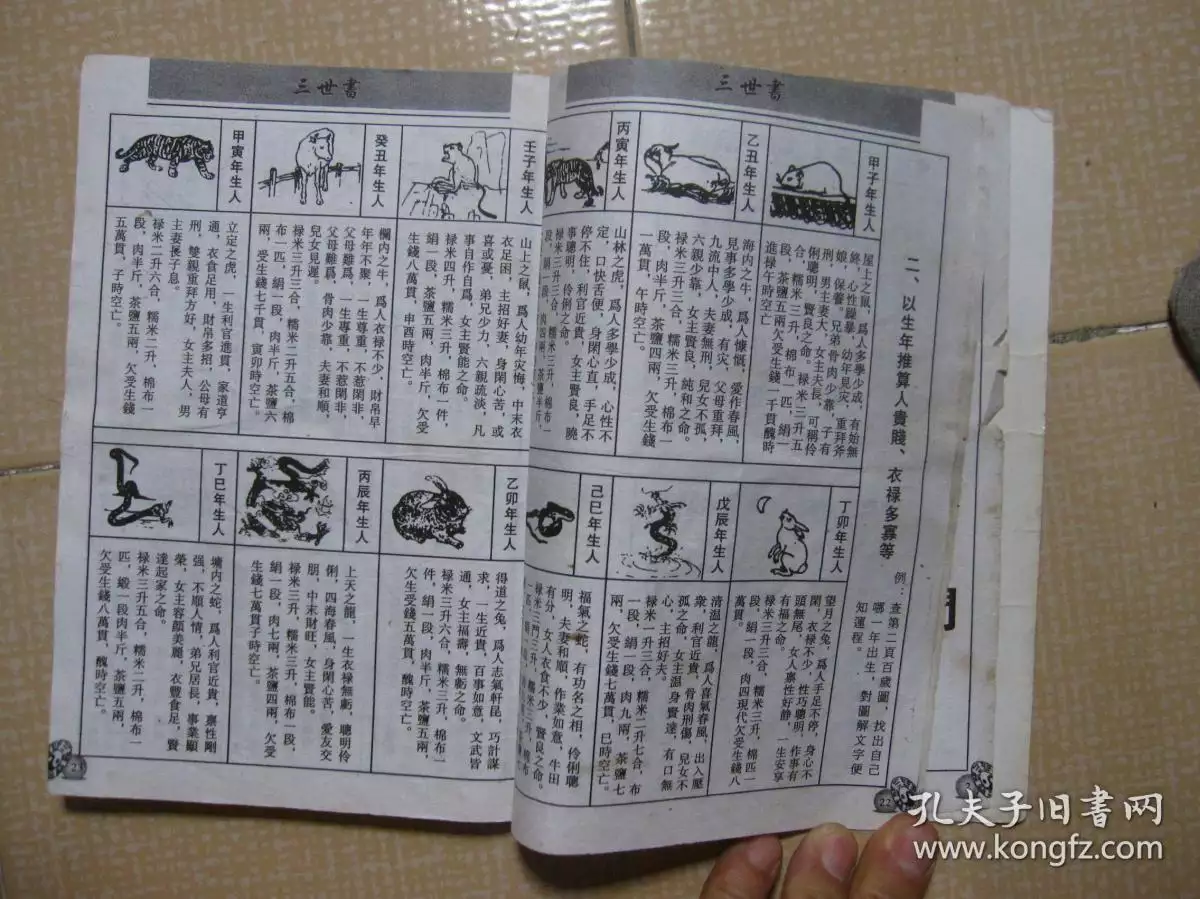 三世書
二、以生年推算人貴賤、衣禄多寡等
例：查第二頁百歲圖，找出自己
哪一年出生，對圖解文字便
知運程。
甲子年生人
屋上之鼠，爲人多學少成，有始無
終，心性躁暴，幼年見灾，重拜爹
娘，保養。兄弟骨肉少靠，子有
刑，男主妻大，女主夫長，可稱伶
俐聰明，賢良之命。禄米三升五
合，糯米三升，棉布一匹，絹一
段，茶鹽五兩欠受生錢一千貫醜時
進禄午時空亡
乙丑年生人
海内之牛，爲人慷慨，愛作春風，
見事多學少成，有灾，父母重拜，
九流中人，夫妻無刑，兒女不孤，
六親少靠，女主賢良，純和之命。
禄米三升三合，糯米三升，棉布一
段，肉半斤，茶鹽四兩，欠受生錢
一萬貫，午時空亡。
丙寅年生人
山林之虎，爲人多學少成，心性不
定，口快舌便，身閑心直，手足不
停不住，利官近貴，女主賢良，曉
事聰明，伶俐之命。
禄米三升三合，糯米三升，棉布一
段，絹一段，肉四兩，茶鹽半斤，
丁卯年生人
望月之兔，爲人手足不停，身心不
閑，衣禄不少，性巧聰明，作事有
頭無尾，女人禀性好静，一生安享
有福之命。
禄米三升三合，糯米三升，棉匹一
段，絹一段，肉四現代欠受生錢八
萬貫。
戊辰年生人
清温之龍，爲人喜氣春風，出入壓
衆，利官近貴，骨肉刑傷，兒女不
孤之命，女主温身賢達，有口無
心，主招好夫。
禄米一升三合，糯米二升七合，布
一段，絹一段，肉九兩，茶鹽七
兩，欠受生錢七萬貫，巳時空亡。
己巳年生人
福氣之蛇，有功名之相，伶俐聰
明，夫妻和順，作業如意，牛田
有分，女人衣食不少，賢良之命。
22
三世書
壬子年生人
山上之鼠，爲人幼年灾悔，中末衣
衣足困，主招好妻，身閑心苦，或
喜或憂，弟兄少力，六親疏淡，凡
事自作自爲，女主賢能之命。
禄米四升，糯米三升，棉布一件，
絹一段，茶鹽五兩，肉半斤，欠受
生錢八萬貫，申酉時空亡。
癸丑年生人
欄内之牛，爲人衣禄不少，財帛早
年年不聚，一生尊重，不惹閑非，
父母難爲，一生專重，不惹閑非，
父母雖爲，骨肉少靠，夫妻和順，
兒女見遲。
禄米三升三合，糯米二升五合，棉
布一匹，絹一段，肉半斤，茶鹽六
兩，受生錢七千貫，寅卯時空亡。
甲寅年生人
立定之虎，一生利官進貫，家道亨
通，衣食足用，財帛多招，公母有
刑，雙親重拜方好，女主夫人，男
主妻長子息。
禄米二升六合，糯米二升，棉布一
段，肉半斤，茶鹽五兩，欠受生錢
五萬貫，子時空亡。
乙卯年生人
得道之兔，爲人志氣軒昆，巧計謀
求，一生近貴，百事如意，文武皆
通，女主福壽，無虧之命。
禄米三升六合，糯米三升，棉布一
件，絹一段，肉半斤，茶鹽五兩，
欠生受錢五萬貫，醜時空亡。
丙辰年生人
上天之龍，一生衣禄無虧，聰明伶
俐，四海春風，身閑心苦，愛友交
朋，中末財旺，女主賢能。
禄米三升，糯米三升，棉布一段，
絹一段，肉七兩，茶鹽四兩，欠受
生錢七萬貫子時空亡。
丁巳年生人
墉内之蛇，爲人利官近貴，禀性剛
强，不順人情，弟兄居長，事業顯
榮，女主容顔美麗，衣豐食足，賢
達起家之命。
禄米三升五合，糯米二升，棉布一
匹，緞一段肉半斤，茶鹽五兩，
欠受生錢八萬貫，醜時空亡。
孔夫子旧书网
www.kongfz.com